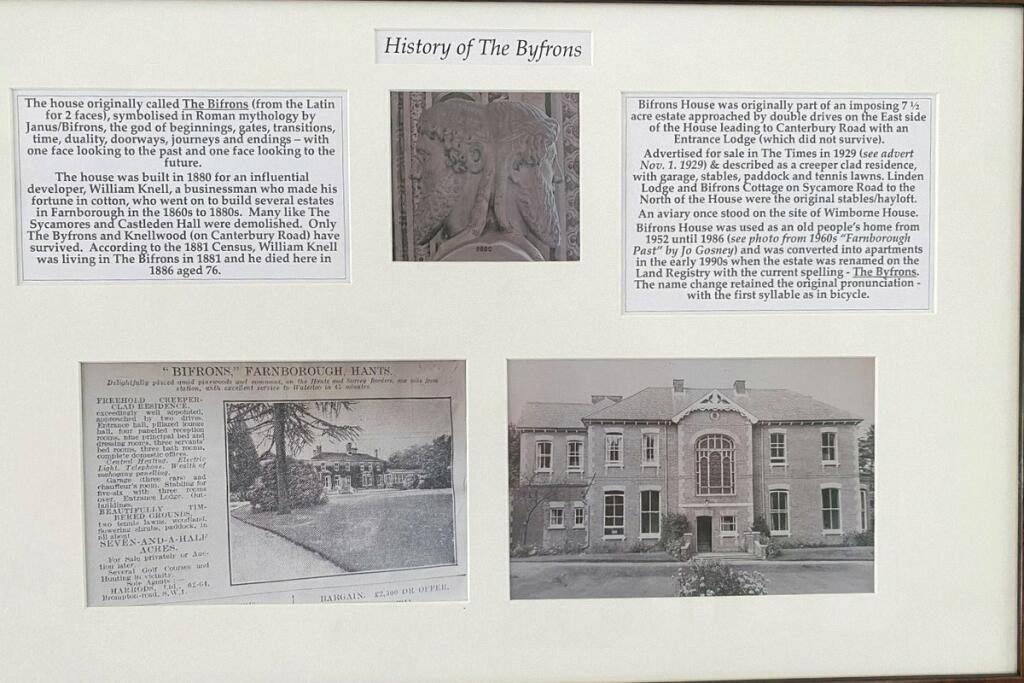 History of The Byfrons
The house originally called The Bifrons (from the Latin
for 2 faces), symbolised in Roman mythology by
Janus/Bifrons, the god of beginnings, gates, transitions,
time, duality, doorways, journeys and endings – with
one face looking to the past and one face looking to the
future.
The house was built in 1880 for an influential
developer, William Knell, a businessman who made his
fortune in cotton, who went on to build several estates
in Farnborough in the 1860s to 1880s. Many like The
Sycamores and Castleden Hall were demolished. Only
The Byfrons and Knellwood (on Canterbury Road) have
survived. According to the 1881 Census, William Knell
was living in The Bifrons in 1881 and he died here in
1886 aged 76.
Bifrons House was originally part of an imposing 7 ½
acre estate approached by double drives on the East side
of the House leading to Canterbury Road with an
Entrance Lodge (which did not survive).
Advertised for sale in The Times in 1929 (see advert
Nov. 1. 1929) & described as a creeper clad residence,
with garage, stables, paddock and tennis lawns. Linden
Lodge and Bifrons Cottage on Sycamore Road to the
North of the House were the original stables/hayloft.
An aviary once stood on the site of Wimborne House.
Bifrons House was used as an old people's home from
1952 until 1986 (see photo from 1960s "Farnborough
Past" by Jo Gosney) and was converted into apartments
in the early 1990s when the estate was renamed on the
Land Registry with the current spelling - The Byfrons.
The name change retained the original pronunciation -
with the first syllable as in bicycle.
"BIFRONS," FARNBOROUGH, HANTS.
Delightfully placed amid pinewoods and common, on the Hants and Surrey Borders, one mile from
station, with excellent service to Waterloo in minutes.
FREEHOLD CREEPER-
CLAD RESIDENCE,
exceedingly well appointed,
approached by two drives.
Entrance hall, pillared lounge
hall, four panelled reception
rooms, nine principal bed and
dressing rooms, three servants'
bed rooms, three bath rooms,
complete domestic offices.
Central Heating. Electric
Light. Telephone. Wealth of
mahogany panelling.
Garage (three cars) and
chauffeur's room. Stabling for
five-six with three rooms
over. Entrance Lodge. Out-
buildings.
BEAUTIFULLY TIM-
BERED GROUNDS,
two tennis lawns, woodland,
flowering shrubs, paddock, in
all about
SEVEN-AND-A-HALF
ACRES.
For Sale privately or Auc-
tion later.
Several Golf Courses and
Hunting in vicinity.
Sole Agents:
HARRODS, Ltd., 62-64,
Brompton-road, S.W.1.
BARGAIN. £2,500 OR OFFER.